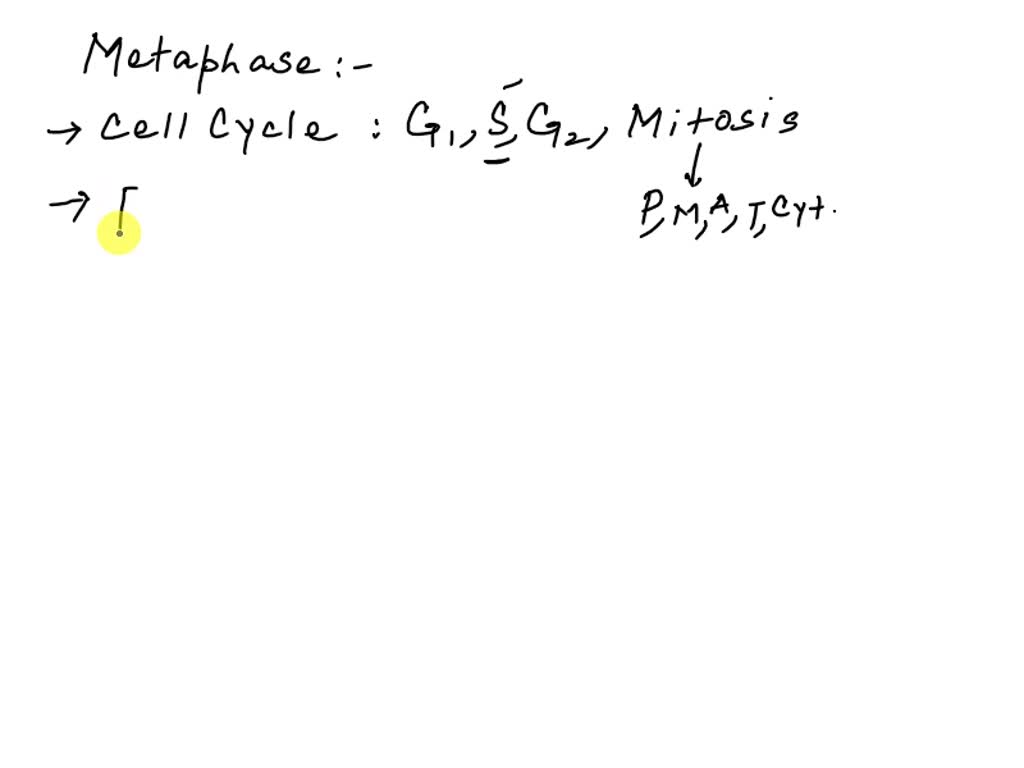 Metaphase:-
→ Cell Cycle : G₁, S, G₂, Mitosis
↓
P, M, A, T, Cyt.
→